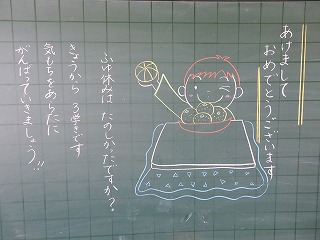 あけまして
おめでとうございます
ふゆ休みは たのしかたですか?
きょうから 3学きです
気もちをあらたに
がんばっていきましょう!!